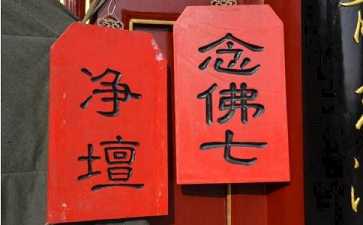 念佛七
净壇